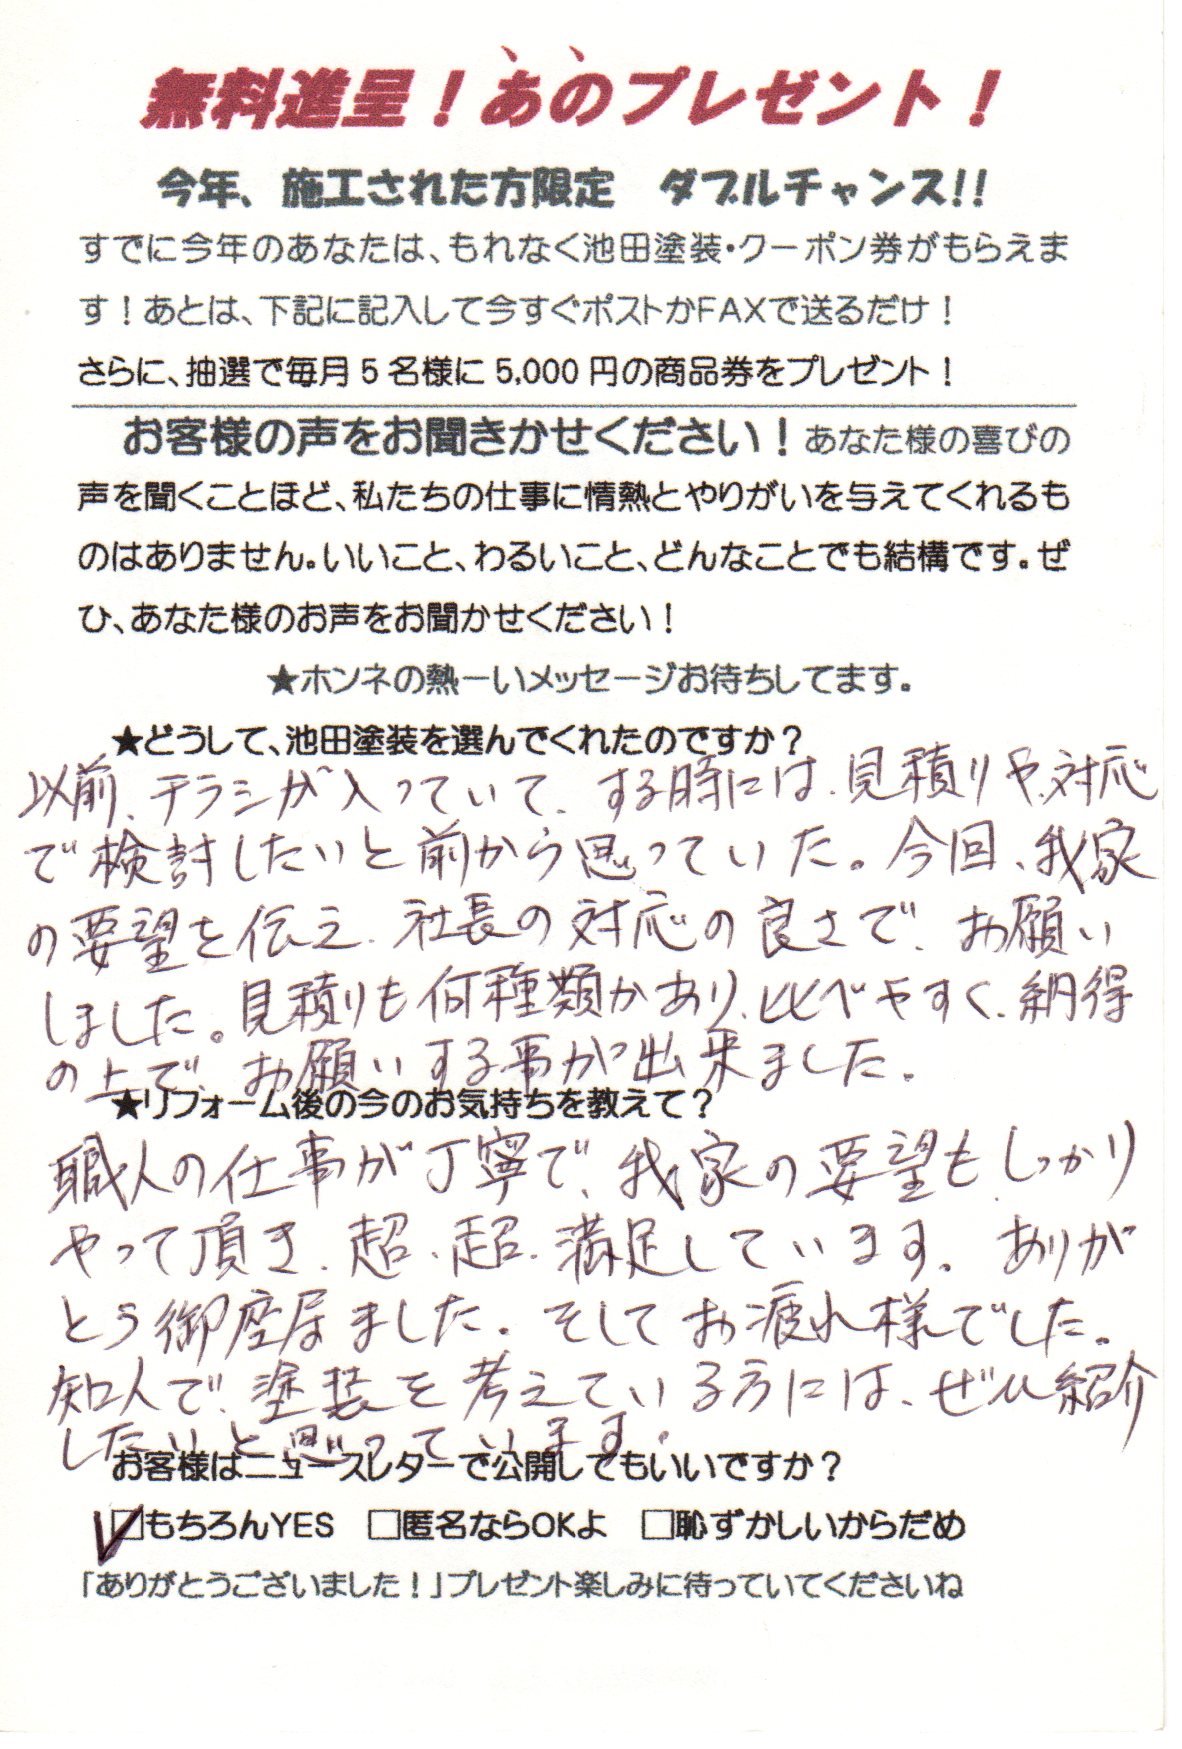 無料進呈！あのプレゼント！
今年、施工された方限定　ダブルチャンス!!
すでに今年のあなたは、もれなく池田塗装・クーポン券がもらえま
す！あとは、下記に記入して今すぐポストかFAXで送るだけ！
さらに、抽選で毎月5名様に5,000円の商品券をプレゼント！
お客様の声をお聞きかせください！あなた様の喜びの
声を聞くことほど、私たちの仕事に情熱とやりがいを与えてくれるも
のはありません。いいこと、わるいこと、どんなことでも結構です。ぜ
ひ、あなた様のお声をお聞かせください！
★ホンネの熱ーいメッセージお待ちしてます。
★どうして、池田塗装を選んでくれたのですか？
以前、チラシが入っていて、する時には、見積りや、対応
で検討したいと前から思っていた。今回、我家
の要望を伝え、社長の対応の良さで、お願い
しました。見積りも何種類かあり、比べやすく、納得
の上で、お願いする事が出来ました。
★リフォーム後の今のお気持ちを教えて？
職人の仕事が丁寧で、我家の要望もしっかり
やって頂き、超、超、満足しています。ありが
とう御座居ました。そしてお疲れ様でした。
知人で、塗装を考えている方には、ぜひ紹介
したいと思っています。
お客様はニュースレターで公開してもいいですか？
☑もちろんYES　□匿名ならOKよ　□恥ずかしいからだめ
「ありがとうございました！」プレゼント楽しみに待っていてくださいね